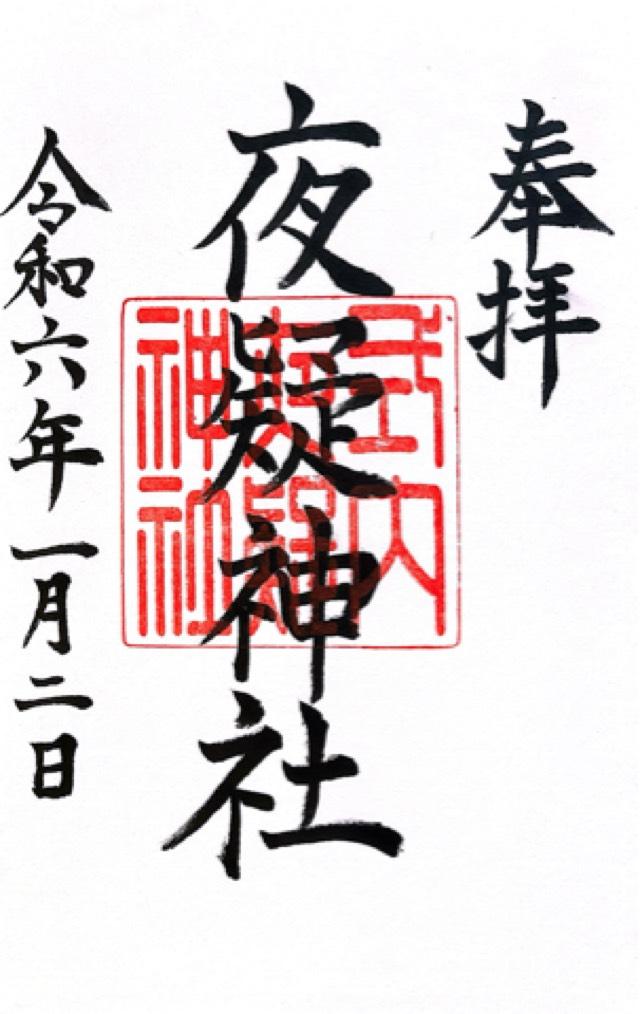 奉拝
夜疑神社
式内
夜疑
神社
令和六年一月二日